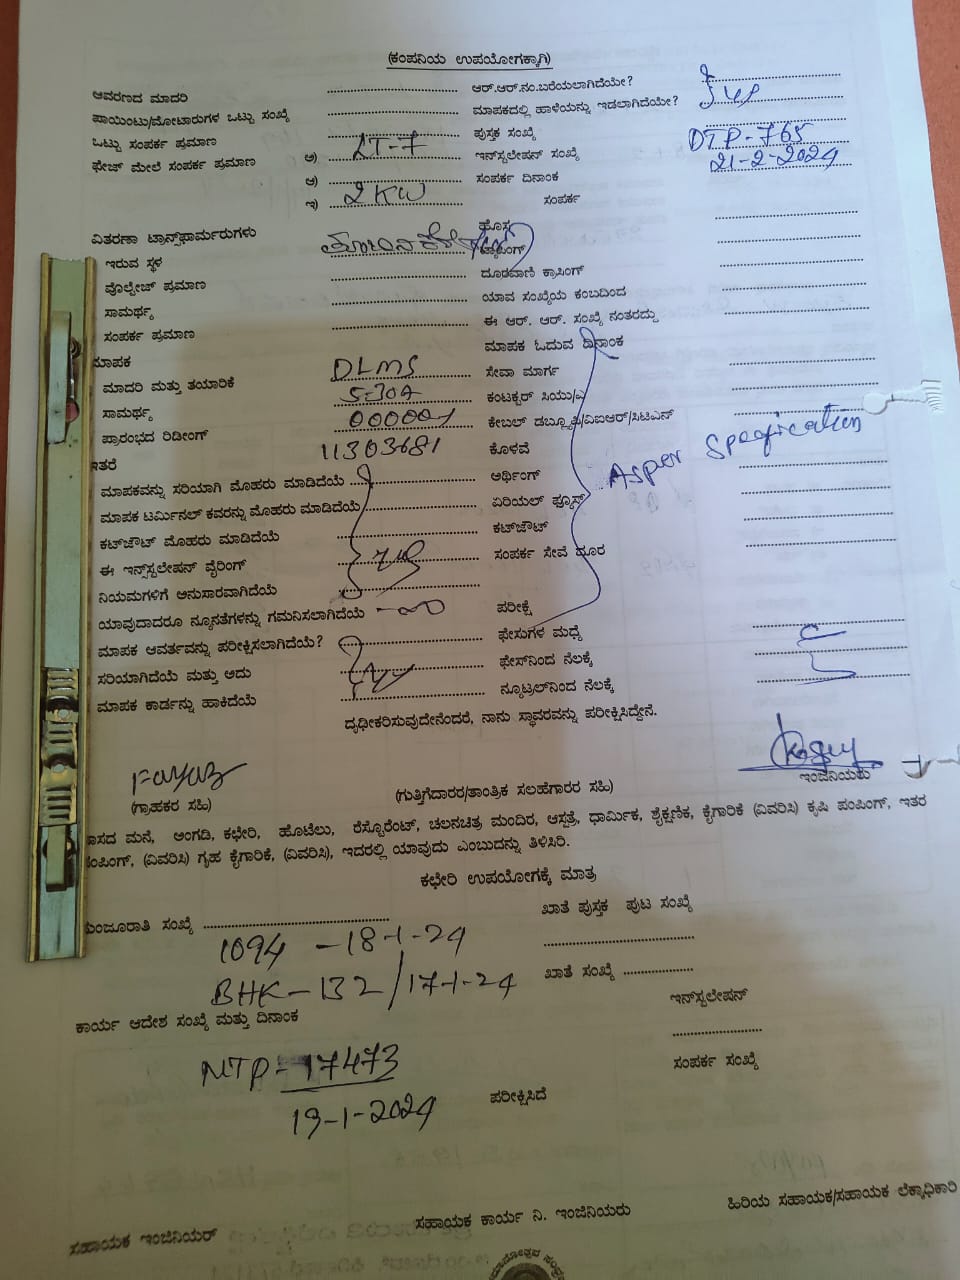 (ಕಂಪನಿಯ ಉಪಯೋಗಕ್ಕಾಗಿ)
ಆವರಣದ ಮಾದರಿ ಆರ್.ಆರ್.ನಂ.ಬರೆಯಲಾಗಿದೆಯೇ?
ಪಾಯಿಂಟು/ಮೋಟಾರುಗಳ ಒಟ್ಟು ಸಂಖ್ಯೆ ಮಾಪಕದಲ್ಲಿ ಹಾಳೆಯನ್ನು ಇಡಲಾಗಿದೆಯೇ?
ಒಟ್ಟು ಸಂಪರ್ಕ ಪ್ರಮಾಣ ಪುಸ್ತಕ ಸಂಖ್ಯೆ
ಫೇಜ್ ಮೇಲೆ ಸಂಪರ್ಕ ಪ್ರಮಾಣ ಅ) LT-7 ಇನ್‌ಸ್ಟಲೇಷನ್ ಸಂಖ್ಯೆ DTP-765
ಆ) ಸಂಪರ್ಕ ದಿನಾಂಕ 21-2-2024
ಇ) 2KW ಸಂಪರ್ಕ
ವಿತರಣಾ ಟ್ರಾನ್ಸ್‌ಫಾರ್ಮರುಗಳು ಹೊಸ
ಇರುವ ಸ್ಥಳ ಟ್ಯಾಪಿಂಗ್
ವೊಲ್ಟೇಜ್ ಪ್ರಮಾಣ ದೂರವಾಣಿ ಕ್ರಾಸಿಂಗ್
ಸಾಮರ್ಥ್ಯ ಯಾವ ಸಂಖ್ಯೆಯ ಕಂಬದಿಂದ
ಸಂಪರ್ಕ ಪ್ರಮಾಣ ಈ ಆರ್. ಆರ್. ಸಂಖ್ಯೆ ನಂತರದ್ದು
ಮಾಪಕ ಮಾಪಕ ಓದುವ ದಿನಾಂಕ
ಮಾದರಿ ಮತ್ತು ತಯಾರಿಕೆ DLMS ಸೇವಾ ಮಾರ್ಗ
ಸಾಮರ್ಥ್ಯ 5-30A ಕಂಟಕ್ಟರ್ ಸಿಯು/ಎ
ಪ್ರಾರಂಭದ ರಿಡೀಂಗ್ 000001 ಕೇಬಲ್ ಡಬ್ಲ್ಯೂಪಿ/ವಿಐಆರ್/ಸಿಟಿಎಸ್
ಇತರೆ 11303681 ಕೊಳವೆ
ಮಾಪಕವನ್ನು ಸರಿಯಾಗಿ ಮೊಹರು ಮಾಡಿದೆಯೆ ಅರ್ಥಿಂಗ್ Asper Specification
ಮಾಪಕ ಟರ್ಮಿನಲ್ ಕವರನ್ನು ಮೊಹರು ಮಾಡಿದೆಯೆ ಏರಿಯಲ್ ಫ್ಯೂಸ್
ಕಟ್‌ಔಟ್ ಮೊಹರು ಮಾಡಿದೆಯೆ ಕಟ್‌ಔಟ್
ಈ ಇನ್ಸ್‌ಸ್ಟಲೇಷನ್ ವೈರಿಂಗ್ ಸಂಪರ್ಕ ಸೇವೆ ದೂರ
ನಿಯಮಗಳಿಗೆ ಅನುಸಾರವಾಗಿದೆಯೆ
ಯಾವುದಾದರೂ ನ್ಯೂನತೆಗಳನ್ನು ಗಮನಿಸಲಾಗಿದೆಯೆ ಪರೀಕ್ಷೆ
ಮಾಪಕ ಆವರ್ತವನ್ನು ಪರೀಕ್ಷಿಸಲಾಗಿದೆಯೆ? ಫೇಸುಗಳ ಮಧ್ಯೆ
ಸರಿಯಾಗಿದೆಯೆ ಮತ್ತು ಅದು ಫೇಸ್‌ನಿಂದ ನೆಲಕ್ಕೆ
ಮಾಪಕ ಕಾರ್ಡನ್ನು ಹಾಕಿದೆಯೆ ನ್ಯೂಟ್ರಲ್‌ನಿಂದ ನೆಲಕ್ಕೆ
ದೃಢೀಕರಿಸುವುದೇನೆಂದರೆ, ನಾನು ಸ್ಥಾವರವನ್ನು ಪರೀಕ್ಷಿಸಿದ್ದೇನೆ.
Fayaz
(ಗ್ರಾಹಕರ ಸಹಿ) (ಗುತ್ತಿಗೆದಾರರ/ತಾಂತ್ರಿಕ ಸಲಹೆಗಾರರ ಸಹಿ) ಇಂಜಿನಿಯರು
ವಾಸದ ಮನೆ, ಅಂಗಡಿ, ಕಛೇರಿ, ಹೊಟೆಲು, ರೆಸ್ಟೊರೆಂಟ್, ಚಲನಚಿತ್ರ ಮಂದಿರ, ಆಸ್ಪತ್ರೆ, ಧಾರ್ಮಿಕ, ಶೈಕ್ಷಣಿಕ, ಕೈಗಾರಿಕೆ (ವಿವರಿಸಿ) ಕೃಷಿ ಪಂಪಿಂಗ್, ಇತರ
ಪಂಪಿಂಗ್, (ವಿವರಿಸಿ) ಗೃಹ ಕೈಗಾರಿಕೆ, (ವಿವರಿಸಿ), ಇದರಲ್ಲಿ ಯಾವುದು ಎಂಬುದನ್ನು ತಿಳಿಸಿರಿ.
ಕಛೇರಿ ಉಪಯೋಗಕ್ಕೆ ಮಾತ್ರ
ಮಂಜೂರಾತಿ ಸಂಖ್ಯೆ ಖಾತೆ ಪುಸ್ತಕ ಪುಟ ಸಂಖ್ಯೆ
1094 -18-1-24
BHK-132/17-1-24 ಖಾತೆ ಸಂಖ್ಯೆ
ಕಾರ್ಯ ಆದೇಶ ಸಂಖ್ಯೆ ಮತ್ತು ದಿನಾಂಕ ಇನ್‌ಸ್ಟಲೇಷನ್
MTP-17473 ಸಂಪರ್ಕ ಸಂಖ್ಯೆ
19-1-2024 ಪರೀಕ್ಷಿಸಿದೆ
ಸಹಾಯಕ ಇಂಜಿನಿಯರ್ ಸಹಾಯಕ ಕಾರ್ಯ ನಿ. ಇಂಜಿನಿಯರು ಹಿರಿಯ ಸಹಾಯಕ/ಸಹಾಯಕ ಲೆಕ್ಕಾಧಿಕಾರಿ